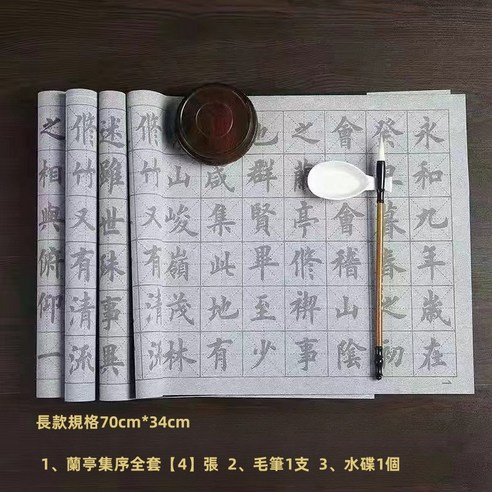 永和九年歲在
癸丑暮春之初
會會稽山陰
之蘭亭脩禊事
也群賢畢至少
咸集此地有
山峻嶺茂林
脩竹又有清流
述雖世殊事異
脩竹又有清流
之相與俯仰一
一
長款規格70cm*34cm
1、蘭亭集序全套【4】張 2、毛筆1支 3、水碟1個